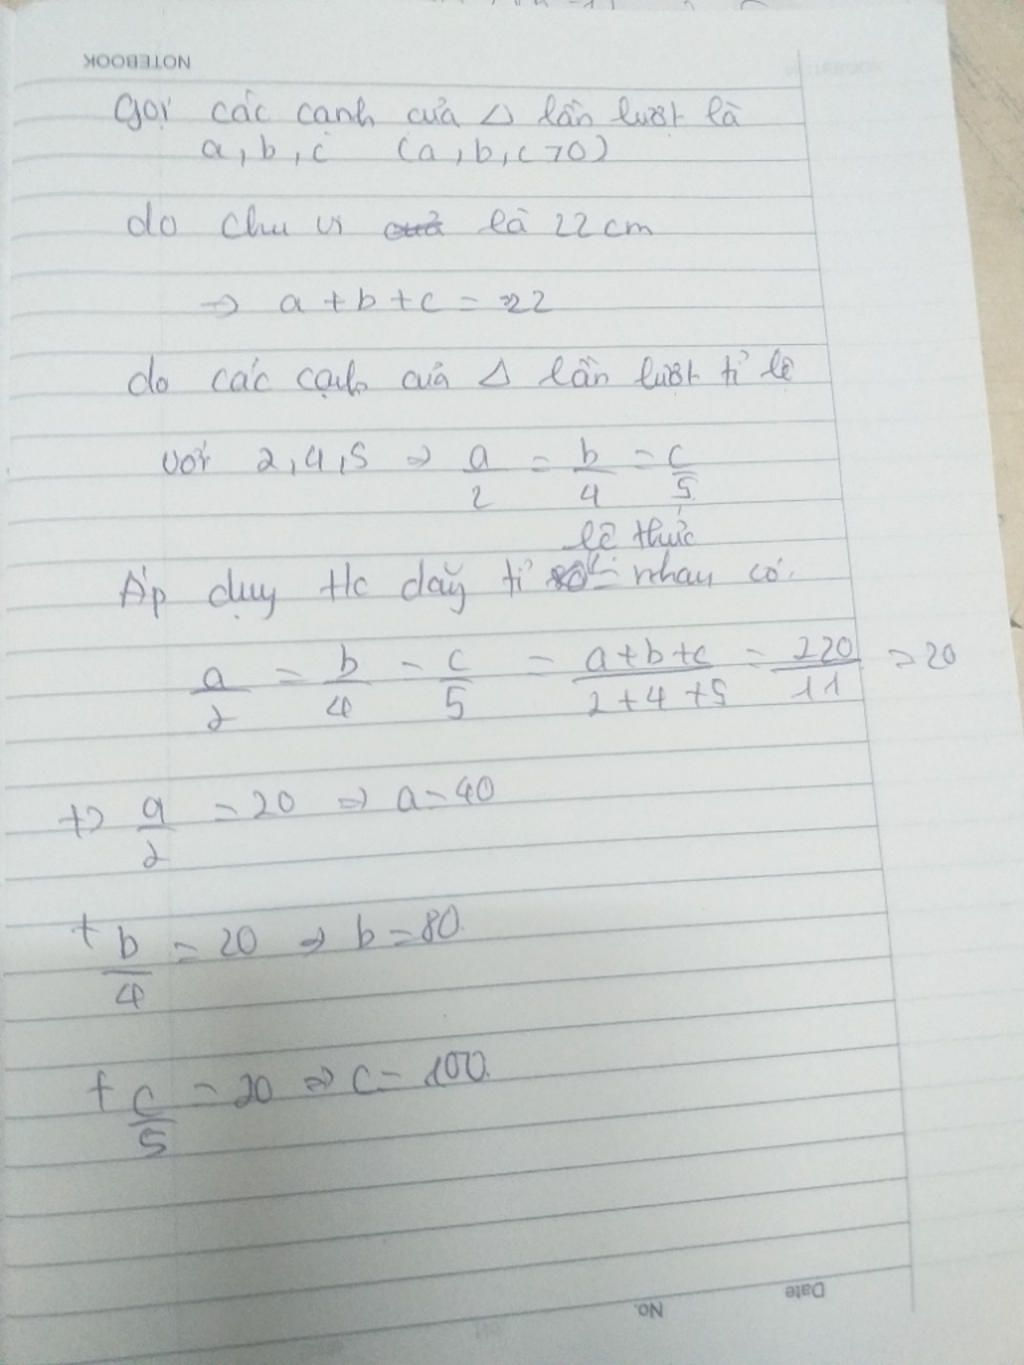 NOTEBOOK
Gọi các cạnh của Δ lần lượt là
a, b, c (a, b, c > 0)
do chu vi là 22 cm
⇒ a + b + c = 22
do các cạnh của Δ lần lượt tỉ lệ
với 2, 4, 5 ⇒ a/2 = b/4 = c/5
lệ thức
Áp dụy t/c dãy tỉ = nhau có.
a/2 = b/4 = c/5 = a+b+c/2+4+5 = 220/11 = 20
+> a/2 = 20 ⇒ a = 40
+ b/4 = 20 ⇒ b = 80.
+ c/5 = 20 ⇒ c = 100.
Date
No.